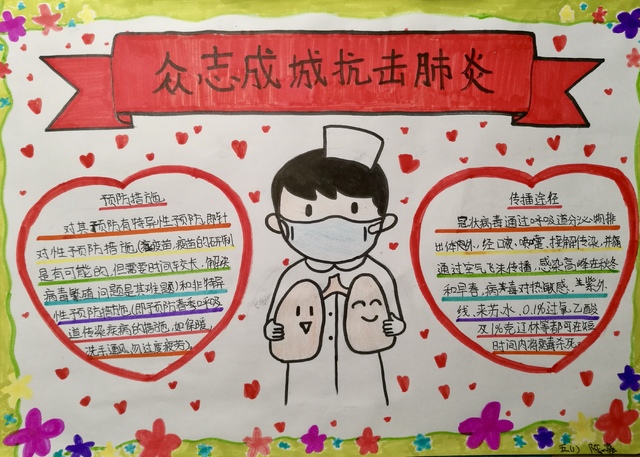 众志成城抗击肺炎
预防措施
对其预防有特异性预防,即针
对性预防措施(疫苗,疫苗的研制
是有可能的,但需要时间较长,解决
病毒繁殖问题是其难题)和非特异
性预防措施(即予防春季呼吸
道传染疾病的措施,如保暖,
洗手通风,勿过度疲劳)
传播途径
冠状病毒通过呼吸道分泌物排
出体外,经口液,喷嚏,接触传染,并
通过空气飞沫传播,感染高峰在秋冬
和早春,病毒对热敏感,紫外
线,来苏水,0.1%过氧乙酸
及1%克辽林等都可在短
时间内将病毒杀死
五(1)